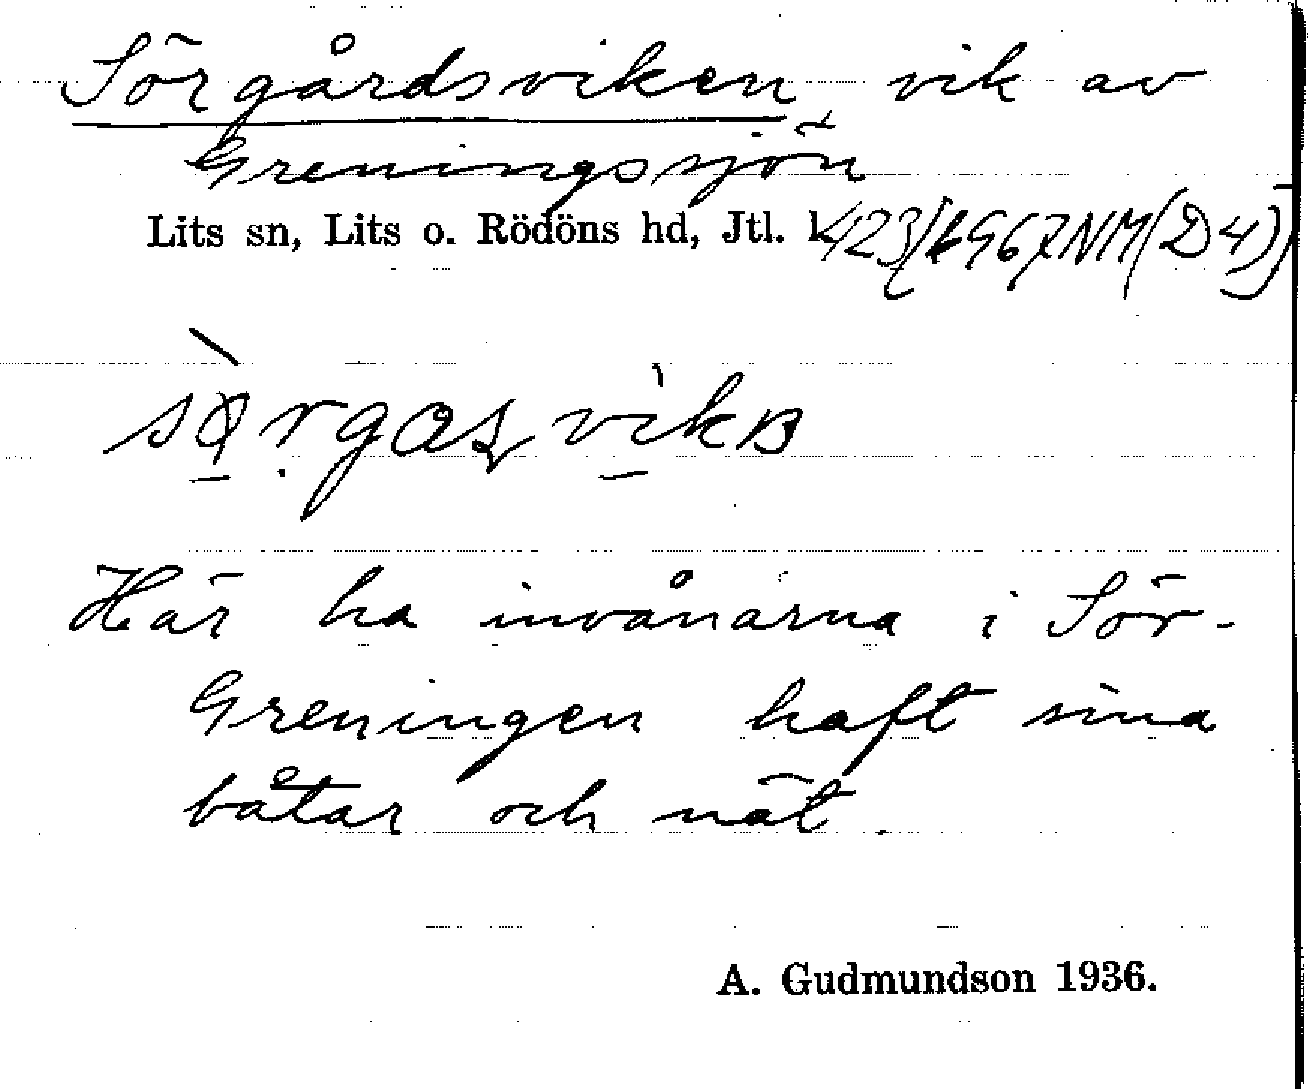 Sörgårdsviken vik av
Greningssjön
Lits sn, Lits o. Rödöns hd, Jtl. l.
Här ha invånarna i Sör-
Greningen haft sina
båtar och nät.
A. Gudmundson 1936.